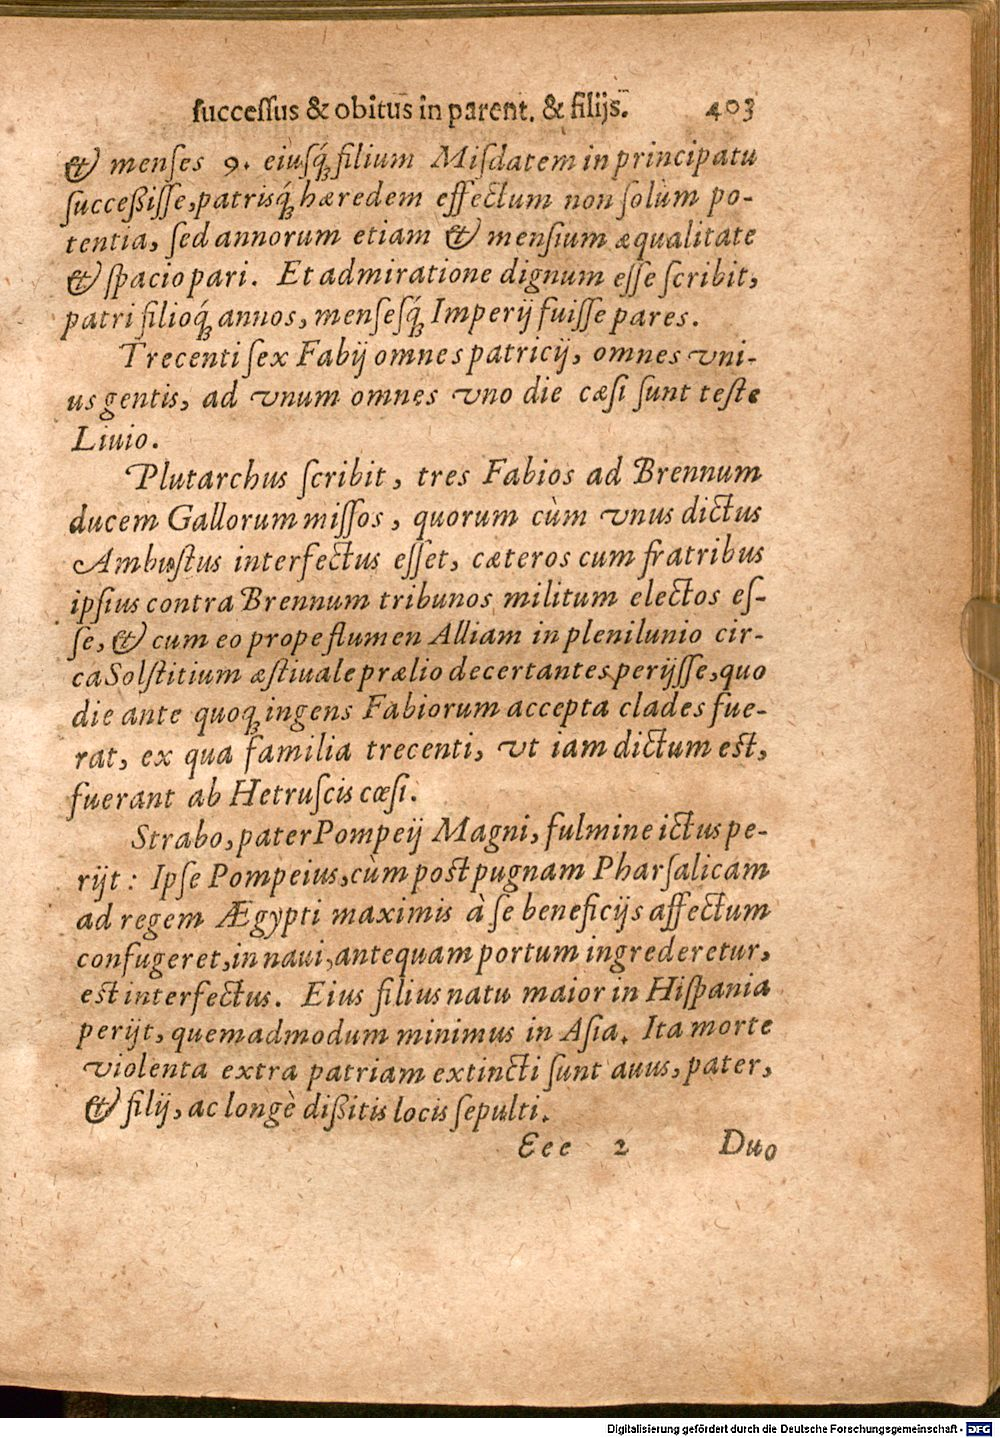 ſucceſſus & obitus in parent. & filijs. 403
& menses 9. eiuſq́; filium Miſdatem in principatu
ſucceßiſſe, patrisq́; hæredem effectum non ſolùm po-
tentia, ſed annorum etiam & menſium æqualitate
& ſpacio pari. Et admiratione dignum eſſe ſcribit,
patri filioq́; annos, menſeſq́; Imperij fuiſſe pares.
Trecenti ſex Fabij omnes patricij, omnes vni-
us gentis, ad vnum omnes vno die cæſi ſunt teſte
Liuio.
Plutarchus ſcribit, tres Fabios ad Brennum
ducem Gallorum miſſos, quorum cùm vnus dictus
Ambuſtus interfectus eſſet, cæteros cum fratribus
ipſius contra Brennum tribunos militum electos eſ-
ſe, & cum eo prope flumen Alliam in plenilunio cir-
ca Solſtitium æſtiuale prælio decertantes perijſſe, quo
die ante quoq; ingens Fabiorum accepta clades fue-
rat, ex qua familia trecenti, vt iam dictum eſt,
fuerant ab Hetruſcis cæſi.
Strabo, pater Pompeij Magni, fulmine ictus pe-
rijt: Ipſe Pompeius, cùm post pugnam Pharſalicam
ad regem Ægypti maximis à ſe beneficijs affectum
confugeret, in naui, antequam portum ingrederetur,
est interfectus. Eius filius natu maior in Hiſpania
perijt, quemadmodum minimus in Aſia. Ita morte
violenta extra patriam extincti ſunt auus, pater,
& filij, ac longè dißitis locis ſepulti.
Eee 2 Duo
Digitalisierung gefördert durch die Deutsche Forschungsgemeinschaft - DFG